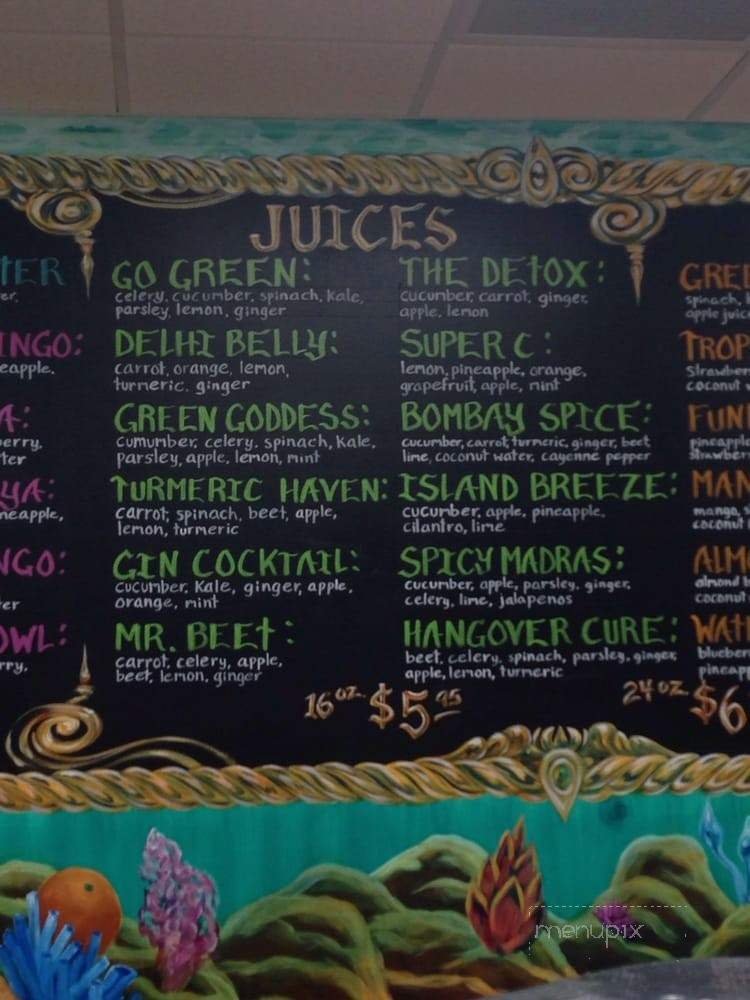 JUICES
TER
er.
INGO:
eapple.
A:
erry,
ter
YA:
neapple,
NGO:
er
OWL:
rry,
GO GREEN:
celery, cucumber, spinach, kale,
parsley, lemon, ginger
DELHI BELLY:
carrot, orange, lemon,
turmeric, ginger
GREEN GODDESS:
cumumber, celery, spinach, kale,
parsley, apple, lemon, mint
TURMERIC HAVEN:
carrot, spinach, beet, apple,
lemon, turmeric
GIN COCKTAIL:
cucumber, kale, ginger, apple,
orange, mint
MR. BEEt:
carrot, celery, apple,
beet, lemon, ginger
THE DEtOX:
cucumber, carrot, ginger,
apple, lemon
SUPER C:
lemon, pineapple, orange,
grapefruit, apple, mint
BOMBAY SPICE:
cucumber, carrot, turmeric, ginger, beet
lime, coconut water, cayenne pepper
ISLAND BREEZE:
cucumber, apple, pineapple,
cilantro, lime
SPICY MADRAS:
cucumber, apple, parsley, ginger,
celery, lime, jalapenos
HANGOVER CURE:
beet, celery, spinach, parsley, ginger,
apple, lemon, turmeric
16oz $5.95
24oz $6
GREE
spinach,
apple juic
TROP
Strawber
coconut w
FUN
pineapple
strawber
MAN
mango, s
coconut
ALMO
almond b
coconut
WAT
blueber
pineapp
menupix